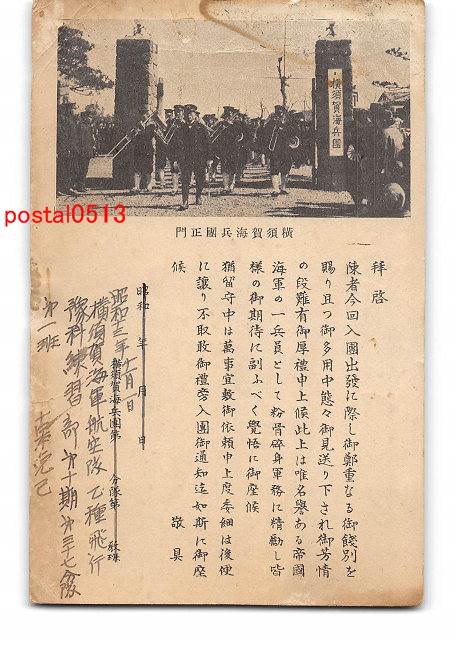 横須賀海兵團
postal0513
門正團兵海賀須横
拝啓
陳者今回入團出發に際し御鄭重なる御餞別を
賜り且つ御多用中態々御見送り下され御芳情
の段難有御厚禮申上候此上は唯名譽ある帝國
海軍の一兵員として粉骨碎身軍務に精勵し皆
様の御期待に副ふべく覺悟に御座候
猶留守中は萬事宜敷御依頼申上度委細は後便
に讓り不取敢御禮旁入團御通知迄如斯に御座
候 敬具
昭和 年 月 日
昭和十二年十一月一日
横須賀海兵團第 分隊第 教班
横須賀海軍航空隊 乙種飛行
豫科練習部 第十期 第三十七分隊
第一班